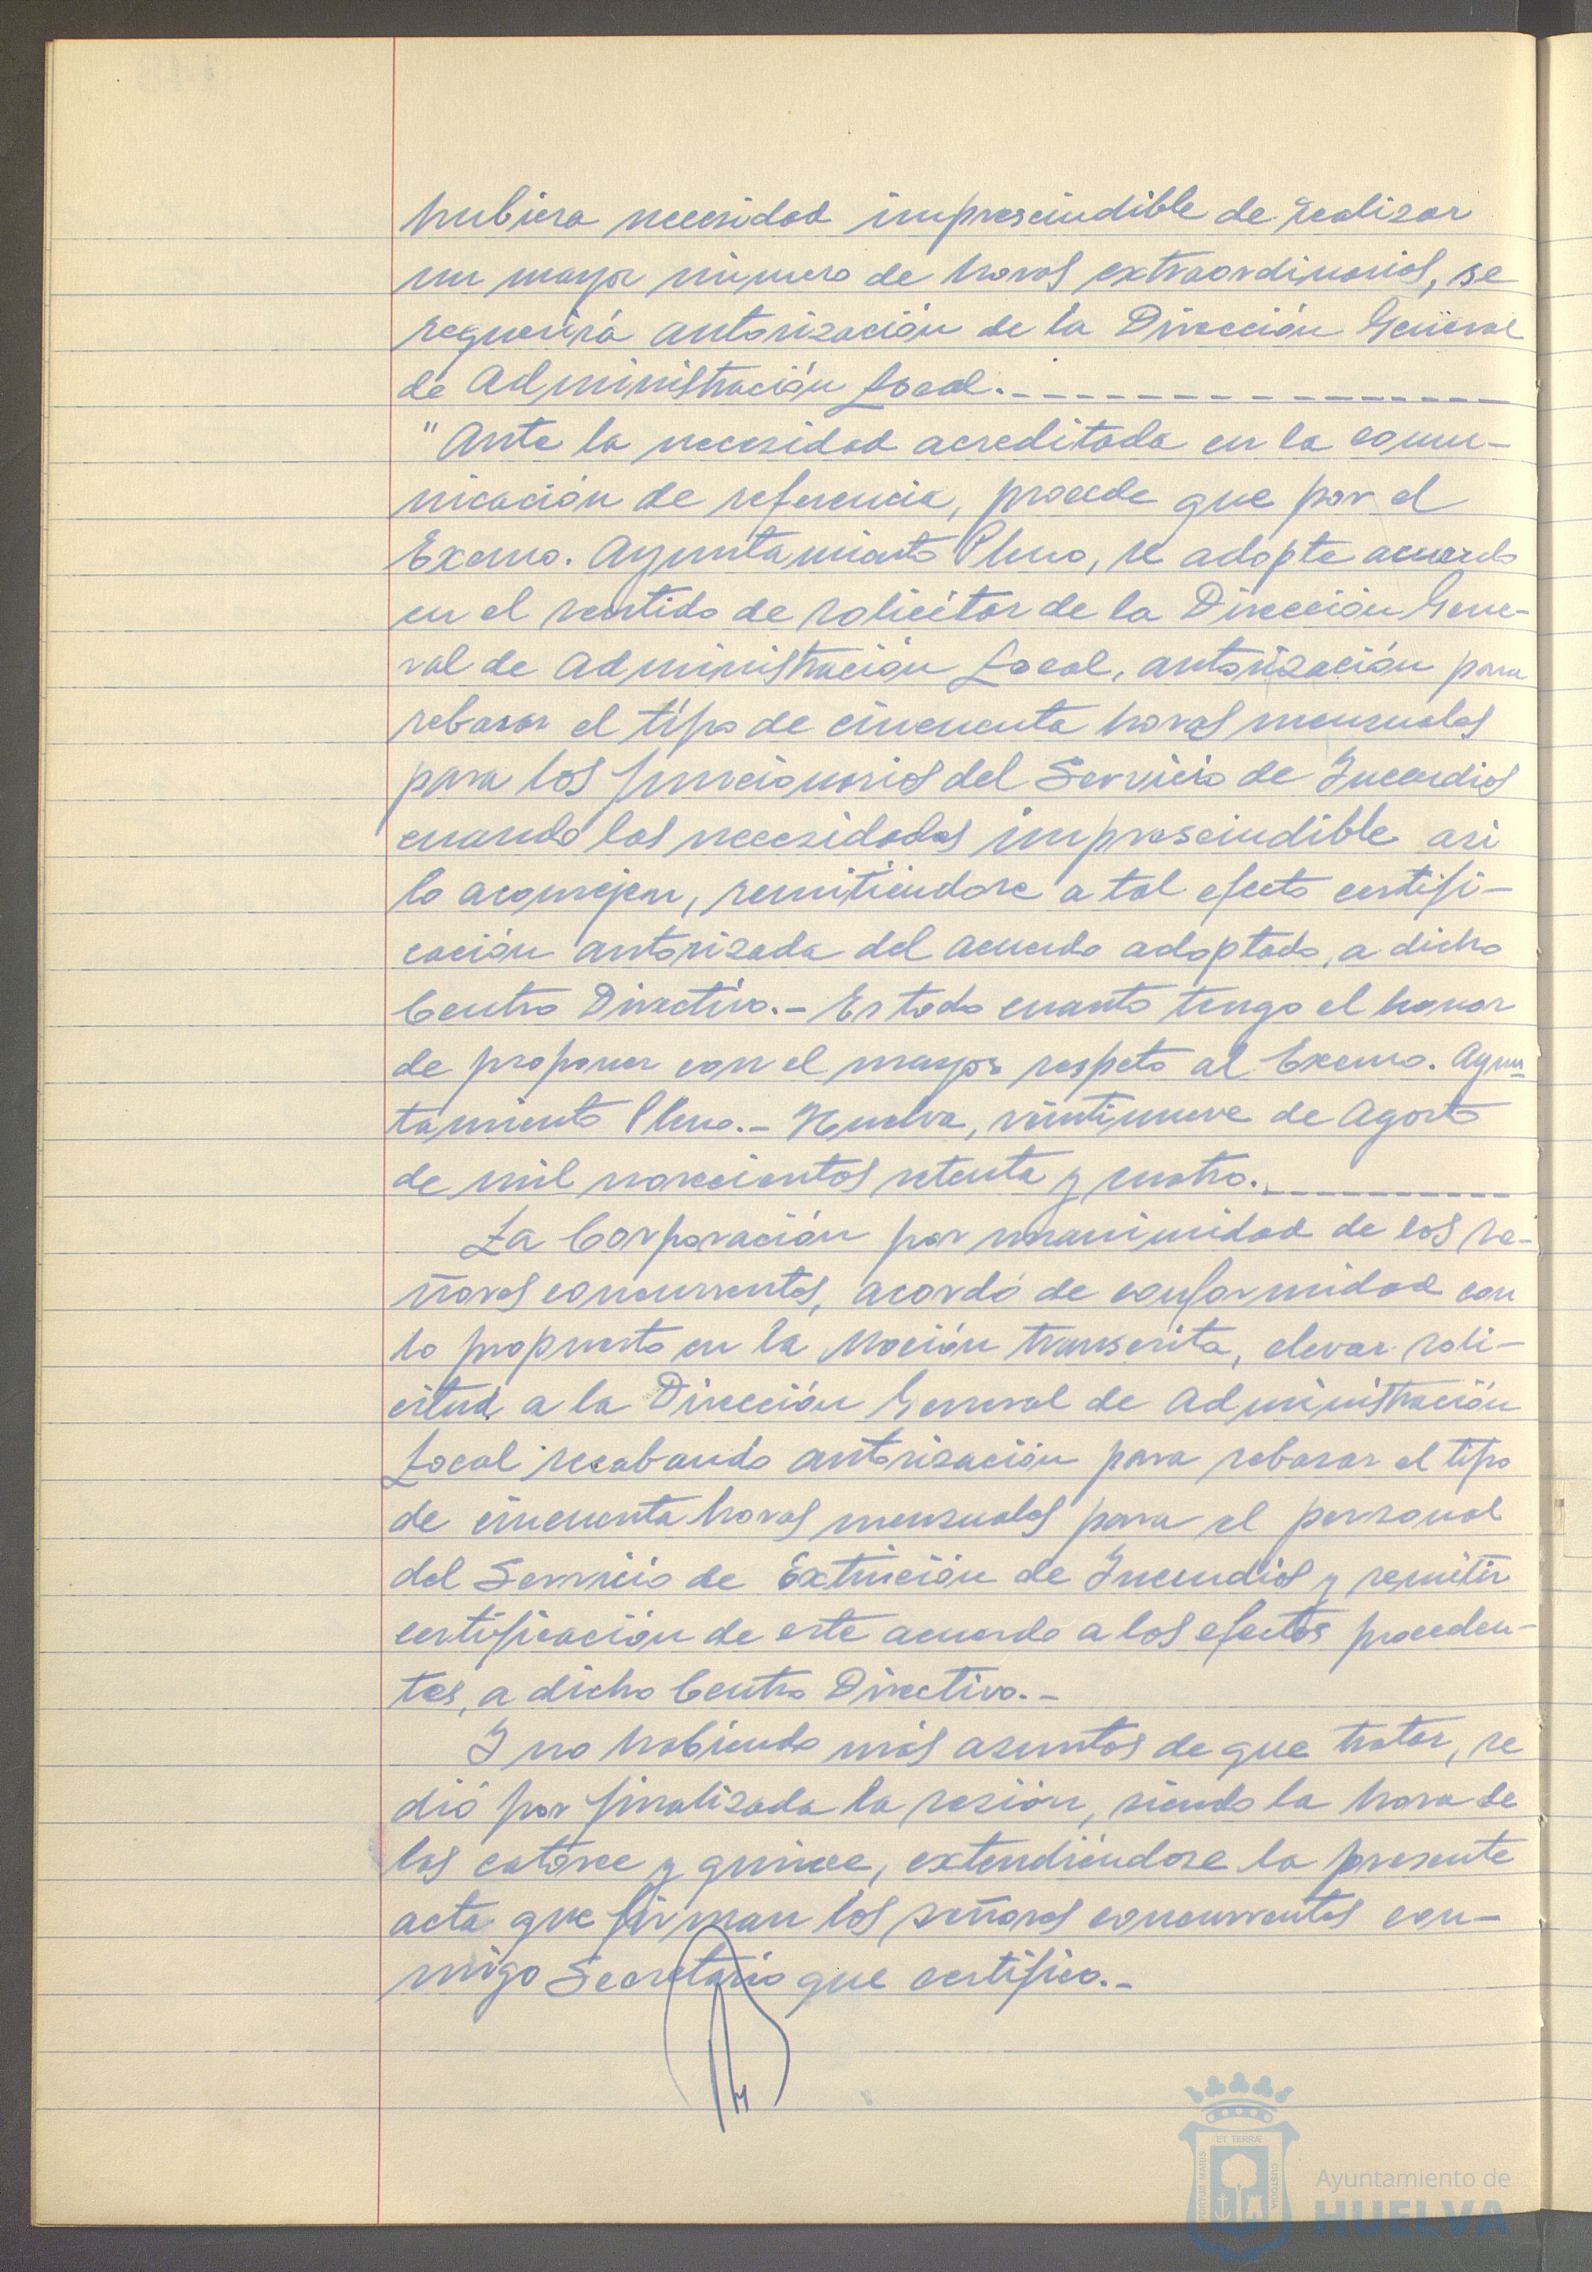 hubiera necesidad imprescindible de realizar
un mayor número de horas extraordinarias, se
requerirá autorización de la Dirección General
de Administración Local.-
"Ante la necesidad acreditada en la comu-
nicación de referencia, procede que por el
Excmo. Ayuntamiento Pleno, se adopte acuerdo
en el sentido de solicitar de la Dirección Gene-
ral de Administración Local, autorización para
rebasar el tipo de cincuenta horas mensuales
para los funcionarios del Servicio de Incendios
cuando las necesidades imprescindible asi
lo aconsejen, remitiéndose a tal efecto certifi-
cación autorizada del acuerdo adoptado, a dicho
Centro Directivo.- Es todo cuanto tengo el honor
de proponer con el mayor respeto al Excmo. Ayun-
tamiento Pleno.- Huelva, veintinueve de Agosto
de mil novecientos setenta y cuatro.-
La Corporación por unanimidad de los se-
ñores concurrentes, acordó de conformidad con
lo propuesto en la Moción transcrita, elevar soli-
citud a la Dirección General de Administración
Local recabando autorización para rebasar el tipo
de cincuenta horas mensuales para el personal
del Servicio de Extinción de Incendios y remitir
certificación de este acuerdo a los efectos proceden-
tes, a dicho Centro Directivo.-
Y no habiendo más asuntos de que tratar, se
dió por finalizada la sesión, siendo la hora de
las catorce y quince, extendiéndose la presente
acta que firman los señores concurrentes con-
migo Secretario que certifico.-
ET TERRÆ
PORTUS MARIS
CUSTODIA
Ayuntamiento de
HUELVA